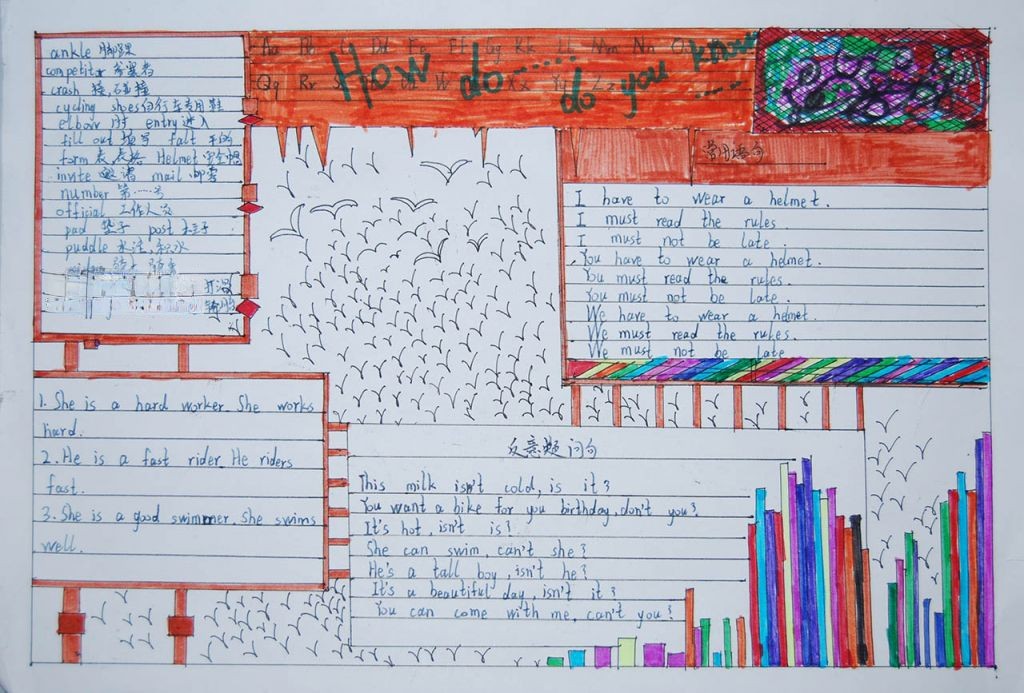 Aa Bb Dd Ff Gg Kk LL Mm Nn
Qq Rr Xx Yy Zz
How do...... do you know
ankle 脚踝
competitor 参赛者
crash 撞,碰撞
cycling shoes 自行车专用鞋
elbow 肘 entry 进入
fill out 填写
form 表,表格 Helmet 安全帽
invite 邀请 mail 邮寄
number 第……号
official 工作人员
pad 垫子 post 柱子
puddle 水洼,积水
常用语句
I have to wear a helmet.
I must read the rules.
I must not be late.
You have to wear a helmet.
You must read the rules.
You must not be late.
We have to wear a helmet.
We must read the rules.
We must not be late
1. She is a hard worker. She works
hard.
2. He is a fast rider. He riders
fast.
3. She is a good swimmer. She swims
well.
反意疑问句
This milk isn't cold, is it?
You want a bike for you birthday, don't you?
It's hot, isn't is?
She can swim, can't she?
He's a tall boy, isn't he?
It's a beautiful day, isn't it?
You can come with me, can't you?